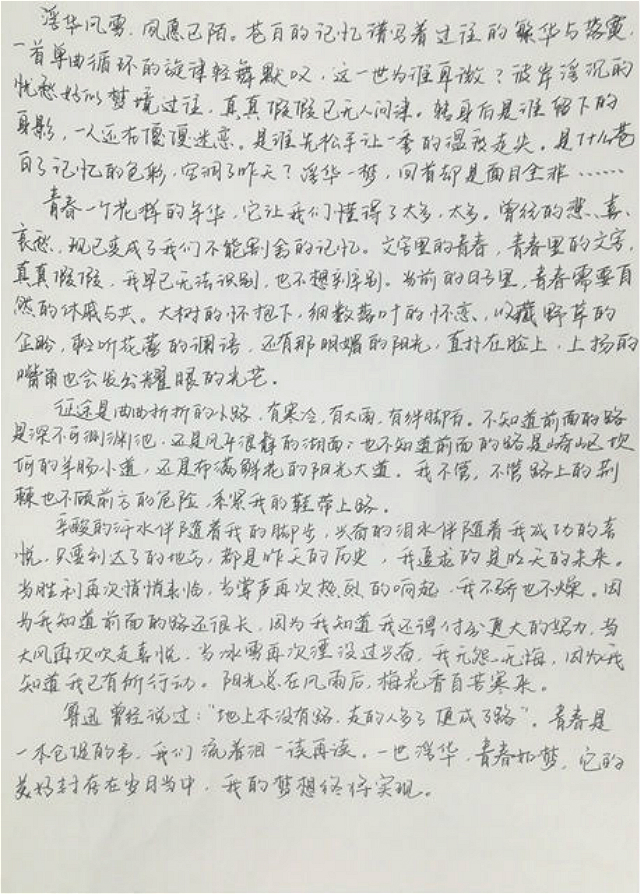 浮华风雪，夙愿已陌。苍白的记忆谱写着过往的繁华与落寞，
一首单曲循环的旋律轻舞默叹，这一世为谁再傲？彼岸浮沉的
忧愁好似梦境过往，真真假假已无人问津。转身后是谁留下的
身影，一人还在傻傻迷恋。是谁先松手让一季的温夜走失，是什么苍
白了记忆的色彩，空洞了昨天？浮华一梦，回首却是面目全非……
青春一个花样的年华，它让我们懂得了太多，太多。曾经的悲、喜、
哀愁，现已变成了我们不能割舍的记忆。文字里的青春，青春里的文字，
真真假假，我早已无法识别，也不想到辨别。当前的日子里，青春需要自
然的休戚与共。大树的怀抱下，细数落叶的怀恋、收藏野草的
企盼，聆听花蕾的调语，还有那明媚的阳光，直扑在脸上，上扬的
嘴角也会发出耀眼的光芒。
征途是曲曲折折的小路，有寒冷，有大雨，有绊脚石。不知道前面的路
是深不可测渊池，还是风平浪静的湖面；也不知道前面的路是崎岖坎
坷的羊肠小道，还是布满鲜花的阳光大道。我不管，不管路上的荆
棘也不顾前方的危险，系紧我的鞋带上路。
辛酸的汗水伴随着我的脚步，兴奋的泪水伴随着我成功的喜
悦，只要到达了的地方，都是昨天的历史，我追求的是明天的未来。
当胜利再次悄悄来临，当掌声再次热烈的响起，我不骄也不燥。因
为我知道前面的路还很长，因为我知道我还得付出更大的努力，当
大风再次吹走喜悦，当冰雪再次湮没过兴奋，我无怨无悔，因为我
知道我已有所行动。阳光总在风雨后，梅花香自苦寒来。
鲁迅曾经说过：“地上本没有路，走的人多了便成了路”。青春是
一本仓促的书，我们流着泪一读再读。一世浮华，青春如梦，它的
美好封存在岁月当中，我的梦想终将实现。